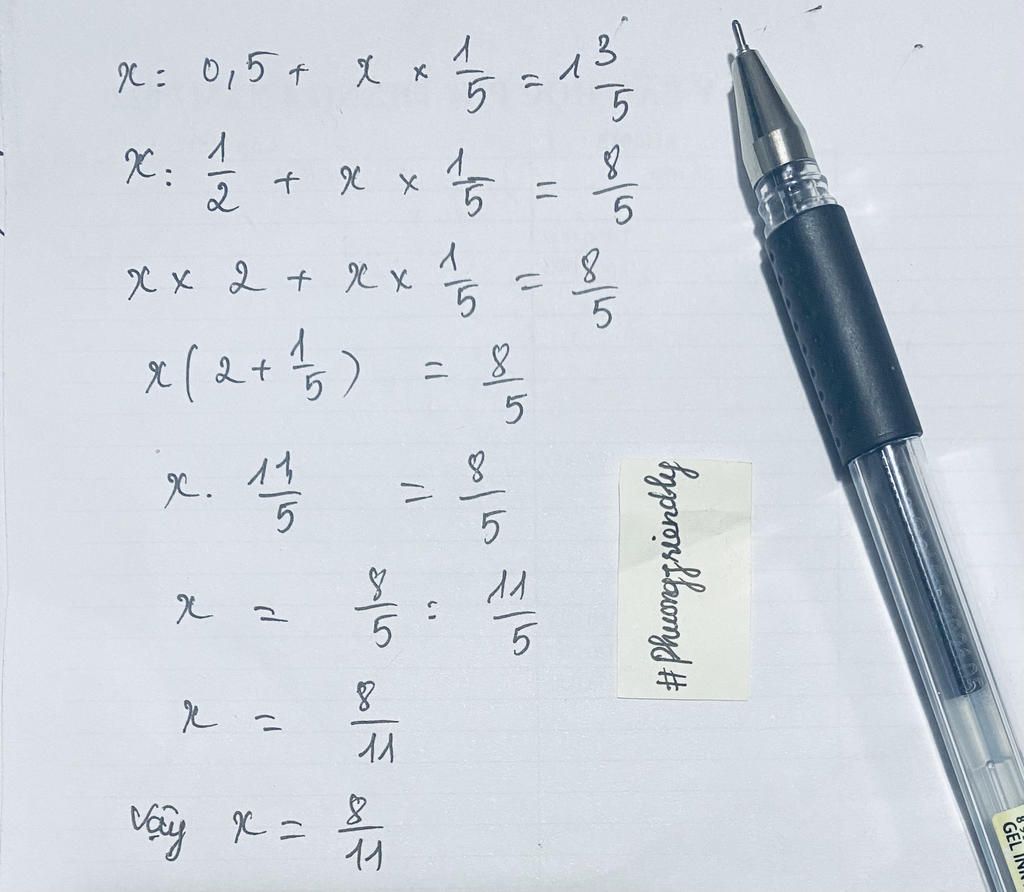 x : 0,5 + x × 1/5 = 1 3/5
x : 1/2 + x × 1/5 = 8/5
x × 2 + x × 1/5 = 8/5
x ( 2 + 1/5 ) = 8/5
x . 11/5 = 8/5
x = 8/5 : 11/5
x = 8/11
Vậy x = 8/11
#phuongfriendly
GEL IN